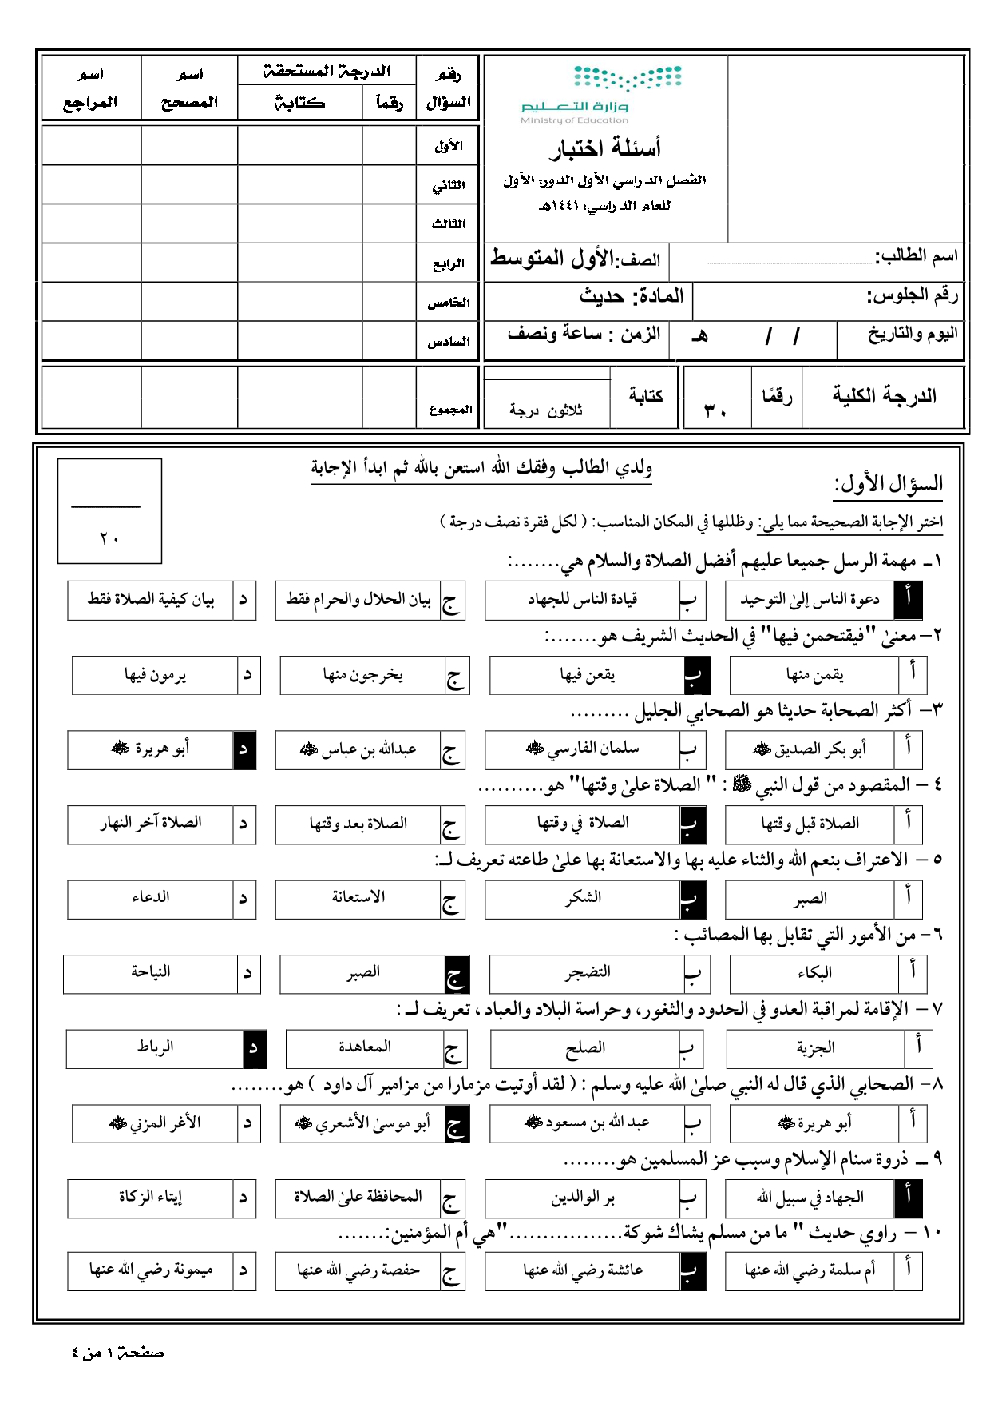 وزارة التعليم
Ministry of Education
أسئلة اختبار
الفصل الدراسي الأول الدور: الأول
للعام الدراسي: ١٤٤١هـ
اسم الطالب: ..............................
الصف: الأول المتوسط
رقم الجلوس:
المادة: حديث
اليوم والتاريخ / / هـ
الزمن : ساعة ونصف
الدرجة الكلية رقمًا ٣٠ كتابة ثلاثون درجة
رقم السؤال الدرجة المستحقة اسم المصحح اسم المراجع
رقماً كتابة
الأول
الثاني
الثالث
الرابع
الخامس
السادس
المجموع
ولدي الطالب وفقك الله استعن بالله ثم ابدأ الإجابة
السؤال الأول:
٢٠
اختر الإجابة الصحيحة مما يلي: وظللها في المكان المناسب: ( لكل فقرة نصف درجة )
١ـ مهمة الرسل جميعا عليهم أفضل الصلاة والسلام هي.......:
أ دعوة الناس إلى التوحيد ب قيادة الناس للجهاد ج بيان الحلال والحرام فقط د بيان كيفية الصلاة فقط
٢– معنى "فيقتحمن فيها" في الحديث الشريف هو.......:
أ يقمن منها ب يقعن فيها ج يخرجون منها د يرمون فيها
٣– أكثر الصحابة حديثا هو الصحابي الجليل .........
أ أبو بكر الصديق ﵁ ب سلمان الفارسي ﵁ ج عبدالله بن عباس ﵁ د أبو هريرة ﵁
٤ – المقصود من قول النبي ﷺ : " الصلاة على وقتها" هو..........
أ الصلاة قبل وقتها ب الصلاة في وقتها ج الصلاة بعد وقتها د الصلاة آخر النهار
٥ – الاعتراف بنعم الله والثناء عليه بها والاستعانة بها على طاعته تعريف لـ:
أ الصبر ب الشكر ج الاستعانة د الدعاء
٦– من الأمور التي تقابل بها المصائب :
أ البكاء ب التضجر ج الصبر د النياحة
٧ – الإقامة لمراقبة العدو في الحدود والثغور، وحراسة البلاد والعباد ، تعريف لـ :
أ الجزية ب الصلح ج المعاهدة د الرباط
٨– الصحابي الذي قال له النبي صلى الله عليه وسلم : ( لقد أوتيت مزمارا من مزامير آل داود ) هو........
أ أبو هريرة ﵁ ب عبد الله بن مسعود ﵁ ج أبو موسى الأشعري ﵁ د الأغر المزني ﵁
٩ ـ ذروة سنام الإسلام وسبب عز المسلمين هو........
أ الجهاد في سبيل الله ب بر الوالدين ج المحافظة على الصلاة د إيتاء الزكاة
١٠ – راوي حديث " ما من مسلم يشاك شوكة................."هي أم المؤمنين:.......
أ أم سلمة رضي الله عنها ب عائشة رضي الله عنها ج حفصة رضي الله عنها د ميمونة رضي الله عنها
صفحة ١ من ٤